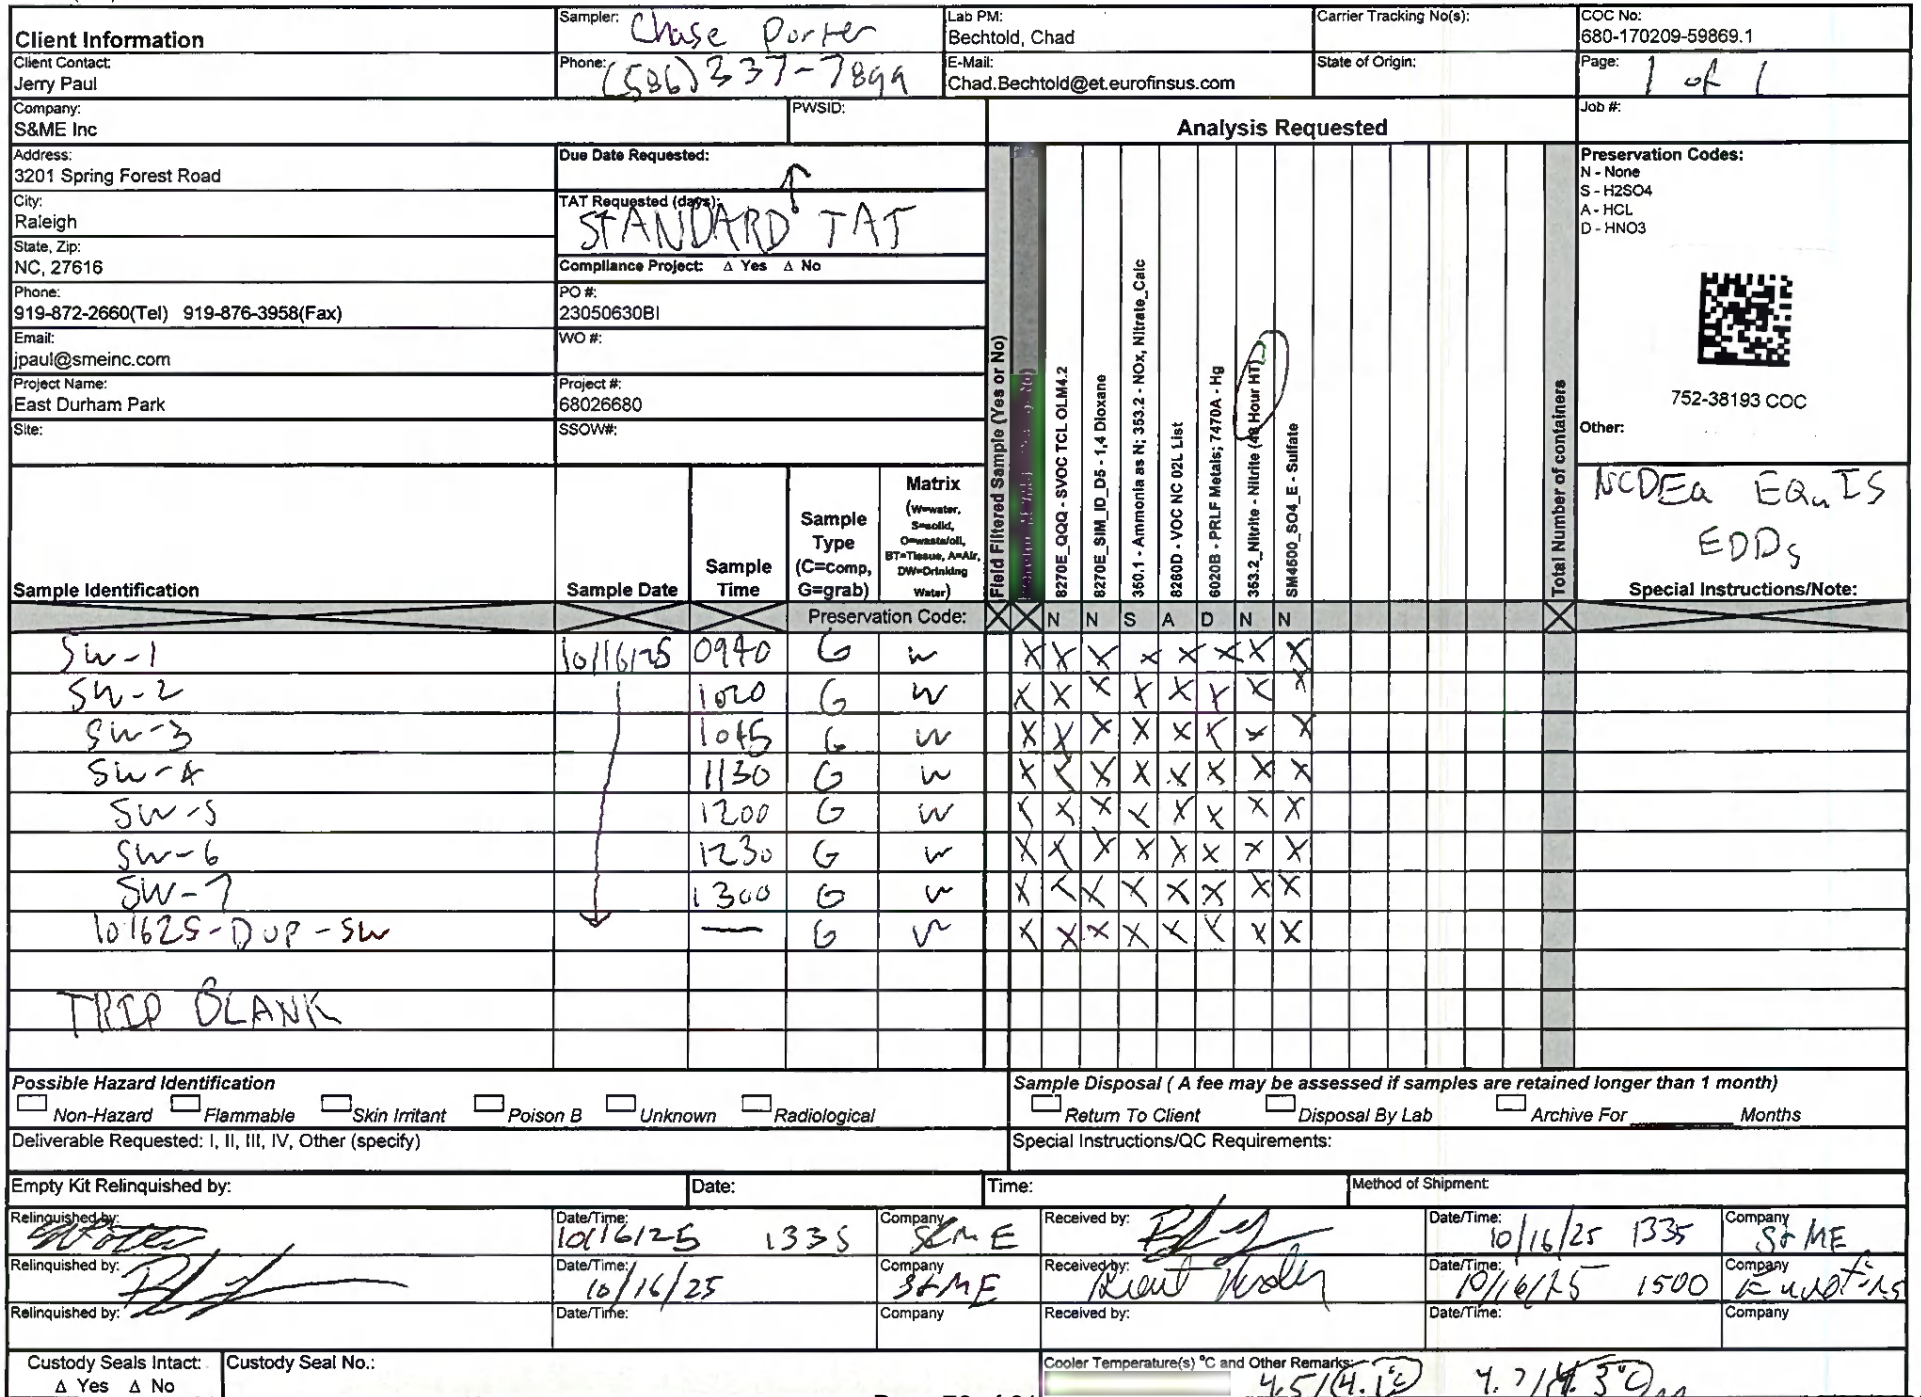 Client Information
Sampler: Chase Porter
Lab PM:
Bechtold, Chad
Carrier Tracking No(s):
COC No:
680-170209-59869.1
Client Contact:
Jerry Paul
Phone: (586) 337-7899
E-Mail:
Chad.Bechtold@et.eurofinsus.com
State of Origin:
Page: 1 of 1
Company:
S&ME Inc
PWSID:
Analysis Requested
Job #:
Address:
3201 Spring Forest Road
Due Date Requested:
Preservation Codes:
N - None
S - H2SO4
A - HCL
D - HNO3
City:
Raleigh
TAT Requested (days):
STANDARD TAT
State, Zip:
NC, 27616
Compliance Project: Δ Yes Δ No
Phone:
919-872-2660(Tel) 919-876-3958(Fax)
PO #:
23050630BI
Email:
jpaul@smeinc.com
WO #:
Project Name:
East Durham Park
Project #:
68026680
752-38193 COC
Site:
SSOW#:
Other:
NCDEQ EQuIS
EDDs
Field Filtered Sample (Yes or No)
8270E_QQQ - SVOC TCL OLM4.2
8270E_SIM_ID_D5 - 1,4 Dioxane
350.1 - Ammonia as N; 353.2 - NOx, Nitrate_Calc
8260D - VOC NC 02L List
6020B - PRLF Metals; 7470A - Hg
353.2_Nitrite - Nitrite (48 Hour HT)
SM4500_SO4_E - Sulfate
Total Number of containers
Sample Identification
Sample Date
Sample Time
Sample Type (C=comp, G=grab)
Matrix (W=water, S=solid, O=waste/oil, BT=Tissue, A=Air, DW=Drinking Water)
Special Instructions/Note:
Preservation Code: X X N N S A D N N X
SW-1 10/16/25 0940 G W X X X X X X X X
SW-2 1020 G W X X X X X X X X
SW-3 1045 G W X X X X X X X X
SW-4 1130 G W X X X X X X X X
SW-5 1200 G W X X X X X X X X
SW-6 1230 G W X X X X X X X X
SW-7 1300 G W X X X X X X X X
101625-DUP-SW — G W X X X X X X X X
TRIP BLANK
Possible Hazard Identification
Non-Hazard Flammable Skin Irritant Poison B Unknown Radiological
Sample Disposal ( A fee may be assessed if samples are retained longer than 1 month)
Return To Client Disposal By Lab Archive For Months
Deliverable Requested: I, II, III, IV, Other (specify)
Special Instructions/QC Requirements:
Empty Kit Relinquished by: Date: Time: Method of Shipment:
Relinquished by: Date/Time: 10/16/25 1335 Company S&ME Received by: Date/Time: 10/16/25 1335 Company S&ME
Relinquished by: Date/Time: 10/16/25 Company S&ME Received by: Date/Time: 10/16/25 1500 Company Eurofins
Relinquished by: Date/Time: Company Received by: Date/Time: Company
Custody Seals Intact:
Δ Yes Δ No
Custody Seal No.:
Cooler Temperature(s) °C and Other Remarks:
4.5/(4.1°C) 4.7/(4.3°C)